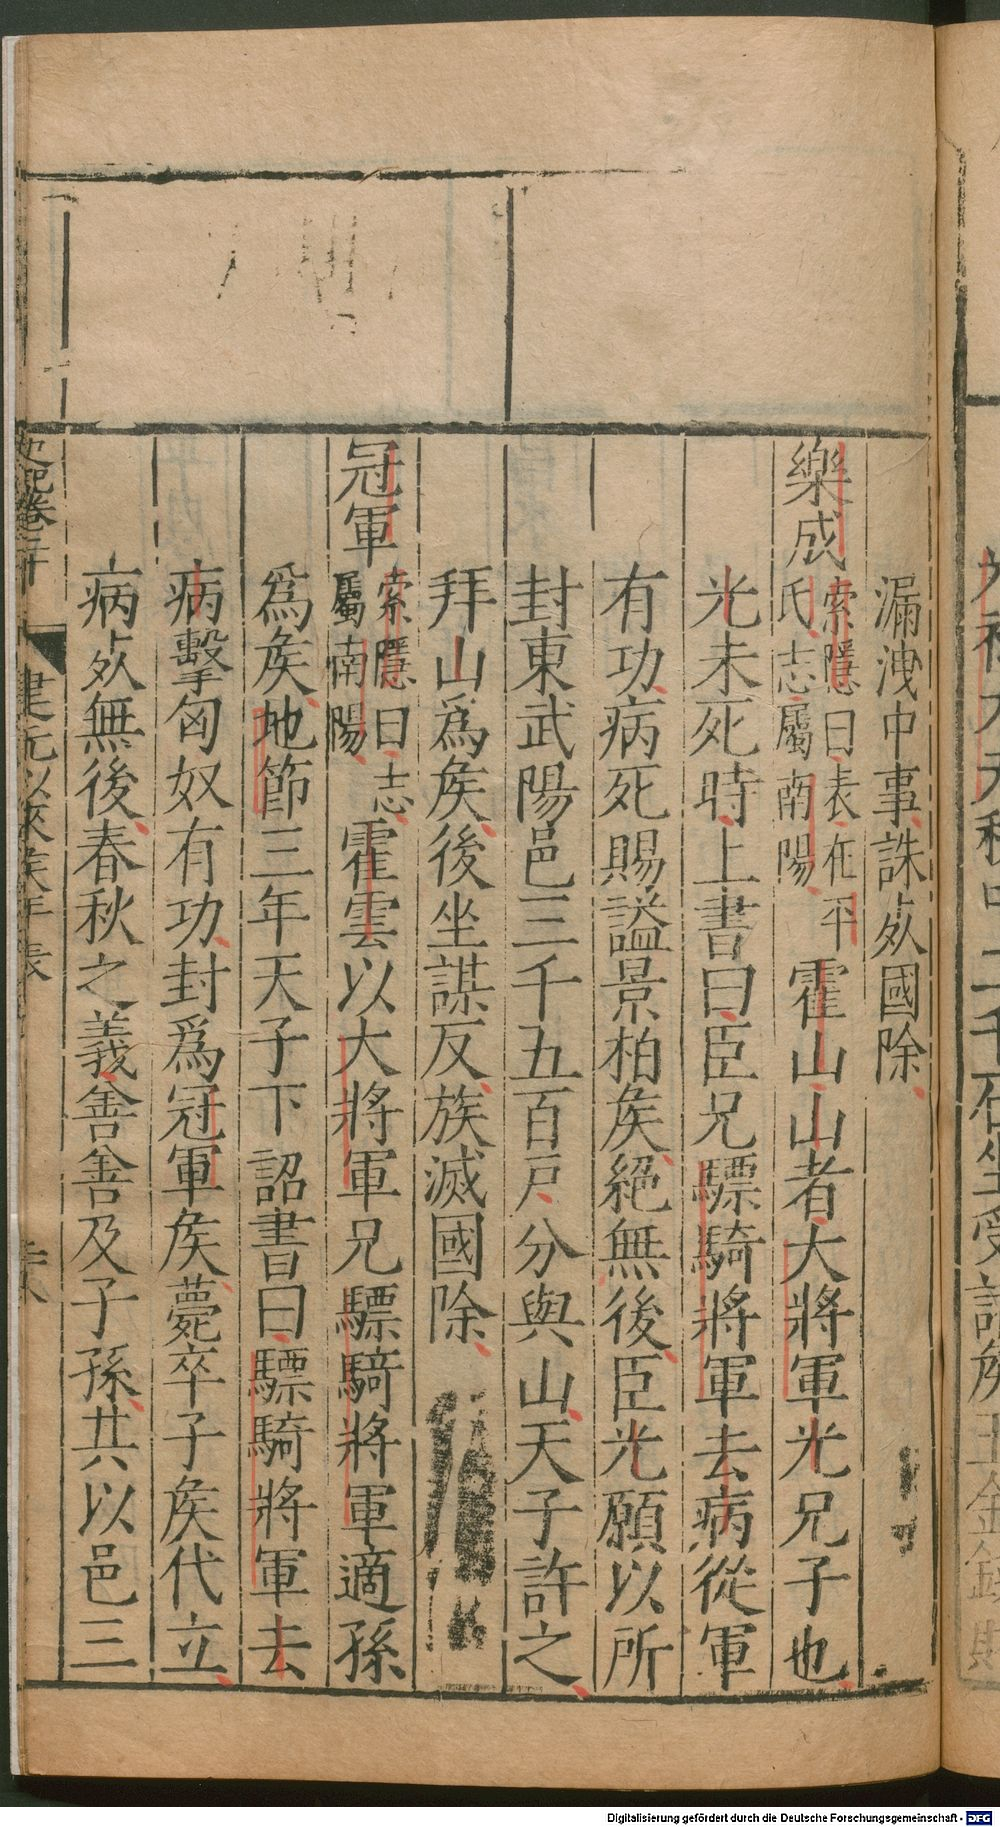 漏洩中事誅死國除
樂成索隱曰表在平氏志屬南陽霍山山者大將軍光兄子也
光未死時上書曰臣兄驃騎將軍去病從軍
有功病死賜謚景柏矦絕無後臣光願以所
封東武陽邑三千五百戶分與山天子許之
拜山爲矦後坐謀反族滅國除
冠軍索隱曰志屬南陽霍雲以大將軍兄驃騎將軍適孫
爲矦地節三年天子下詔書曰驃騎將軍去
病擊匈奴有功封爲冠軍矦薨卒子矦代立
病死無後春秋之義善善及子孫共以邑三
史記卷二十 建元以來矦年表
Digitalisierung gefördert durch die Deutsche Forschungsgemeinschaft - DFG